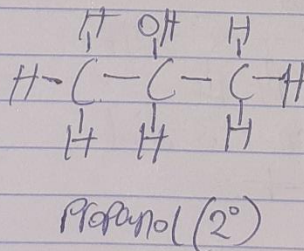 H OH H
H-C-C-C-H
H H H
Propanol (2°)